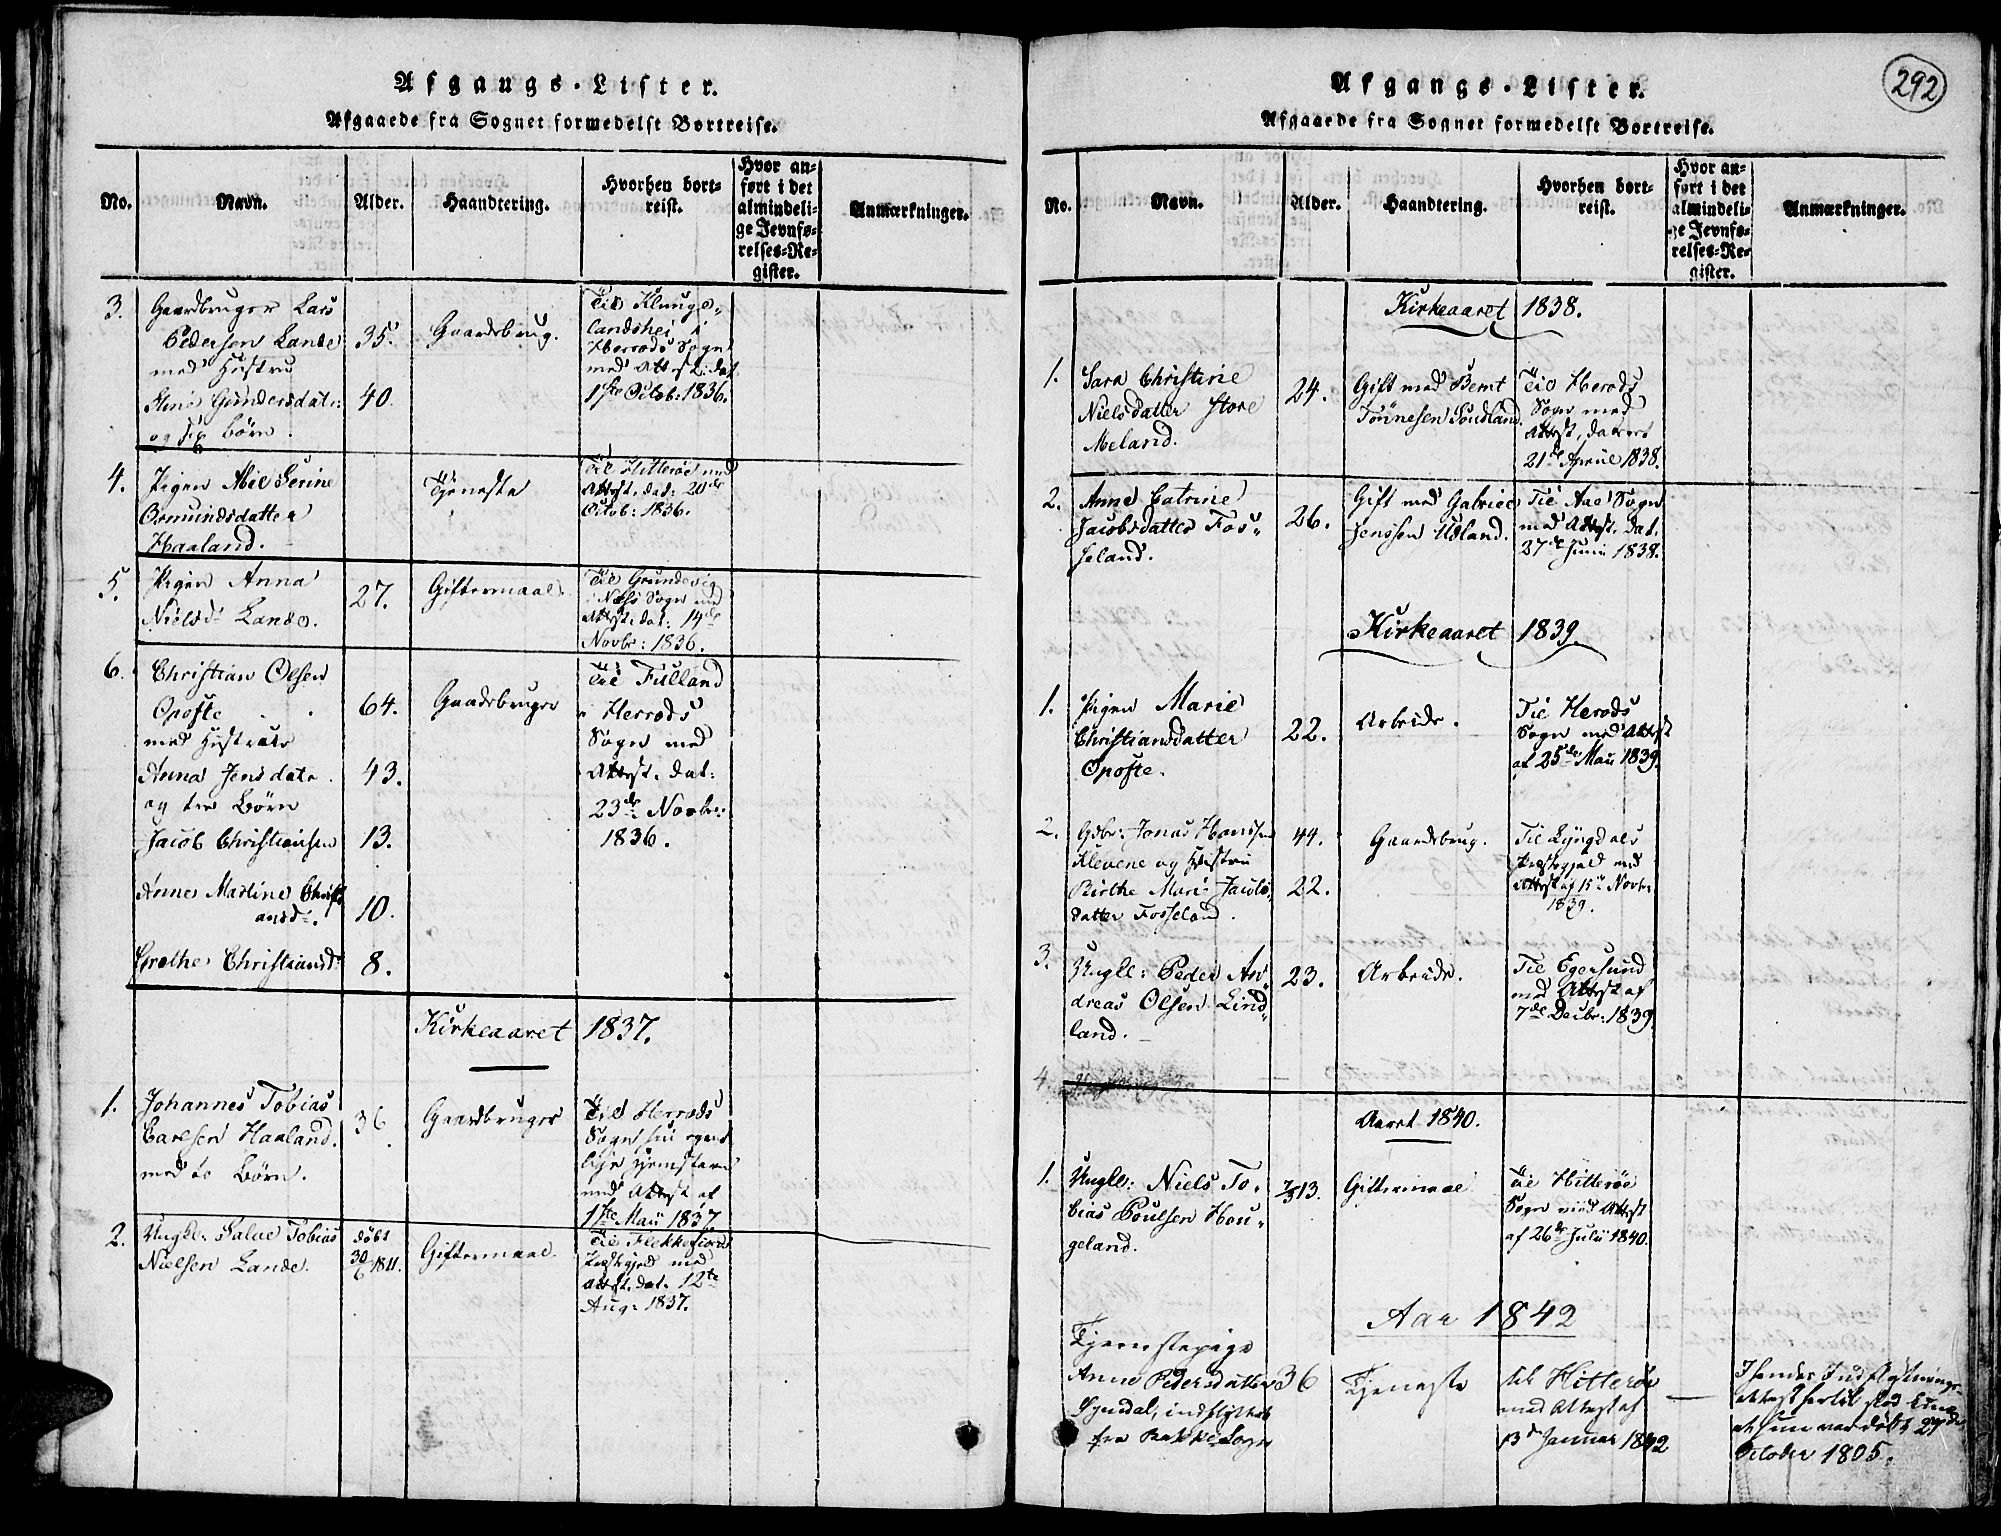 Afgangs-Lister.
Afgaaede fra Sognet formedelst Bortreise.
No.
Navn.
Alder.
Haandtering.
Hvorhen bort-
reist.
Hvor an-
ført i det
almindeli-
ge Jevnfø-
relses-Re-
gister.
Anmærkninger.
3.
Gaardbruger Lars
Pedersen Lande
med Hustru
Gundersdatr:
og sex Børn.
35.
40.
Gaardsbrug.
Til Klunge-
landshei i
Herreds Sogn
med Attest dat
1ste Octob: 1836.
4.
Pigen Abel Serine
Osmundsdatter
Haaland.
Tjeneste
Til Hitterøe med
Attest. dat: 20de
Octob: 1836.
5.
Pigen Anna
Nielsdr Lande.
27.
Giftermaal.
Til Grundevig
i Næss Sogn med
Attest. dat: 14de
Novbr: 1836.
6.
Christian Olsen
Opofte
med Hustrue
Anna Jensdatr.
og tre Børn
Jacob Christiansen
Anne Martine Christi
ansdr.
Grethe Christiansdr
64.
43.
13.
10.
8.
Gaardbruger
Til Fulland
i Herreds
Sogn med
Attest. dat:
23de Novbr:
1836.
Kirkeaaret 1837.
1.
Johannes Tobias
Carlsen Haaland.
med to Børn.
36.
Gaardbruger
Til Herreds
Sogn sin egent
lige Hjemstavn
med Attest af
1ste Maii 1837.
2.
Ungkl: Salve Tobias
Nielsen Lande.
døbt
30/6 1811.
Giftermaal.
Til Flekkefiord
Præstegjeld med
Attest. dat. 12te
Aug: 1837.
292
Afgangs-Lister.
Afgaaede fra Sognet formedelst Bortreise.
No.
Navn.
Alder.
Haandtering.
Hvorhen bort-
reist.
Hvor an-
ført i det
almindeli-
ge Jevnfø-
relses-Re-
gister.
Anmærkninger.
Kirkeaaret 1838.
1.
Sara Christine
Nielsdatter Store
Meland.
24.
Gift med Bernt
Tønnesen Soudland.
Til Herreds
Sogn med
Attest, dateret
21de April 1838.
2.
Anne Catrine
Jacobsdatter Fos-
seland.
26.
Gift med Gabriel
Jenssen Udland.
Til Aae Sogn
med Attest. dat.
27de Junii 1838.
Kirkeaaret 1839.
1.
Pigen Marie
Christiansdatter
Opofte.
22.
Arbeide.
Til Herreds
Sogn med Attest
af 25de Maii 1839.
2.
Gdbr: Jonas Hanssen
Klevene og Hustru
Birthe Marie Jacobs
datter Fosseland.
44.
22.
Gaardsbrug.
Til Lyngdals
Præstegjeld med
Attest af 15de Novbr
1839.
3.
Ungkl: Peder An-
dreas Olsen Lind-
land.
23.
Arbeide.
Til Egersund
med Attest af
7de Decbr: 1839.
4.
Aaret 1840.
1.
Ungkl: Niels To-
bias Poulsen Hou-
geland.
7/3 13.
Giftermaal
Til Hitterøe
Sogn med Attest
af 26de Julii 1840.
Aar 1842
Tjenestepige
Anne Pedersdatter
Syndal, indflyttet
fra Bakke Sogn
36
Tjeneste
til Hitterøe
med Attest af
13de Januar 1842
I hendes Indflytnings-
attest hertil stod kuns
at hun var døbt 27de
October 1805.